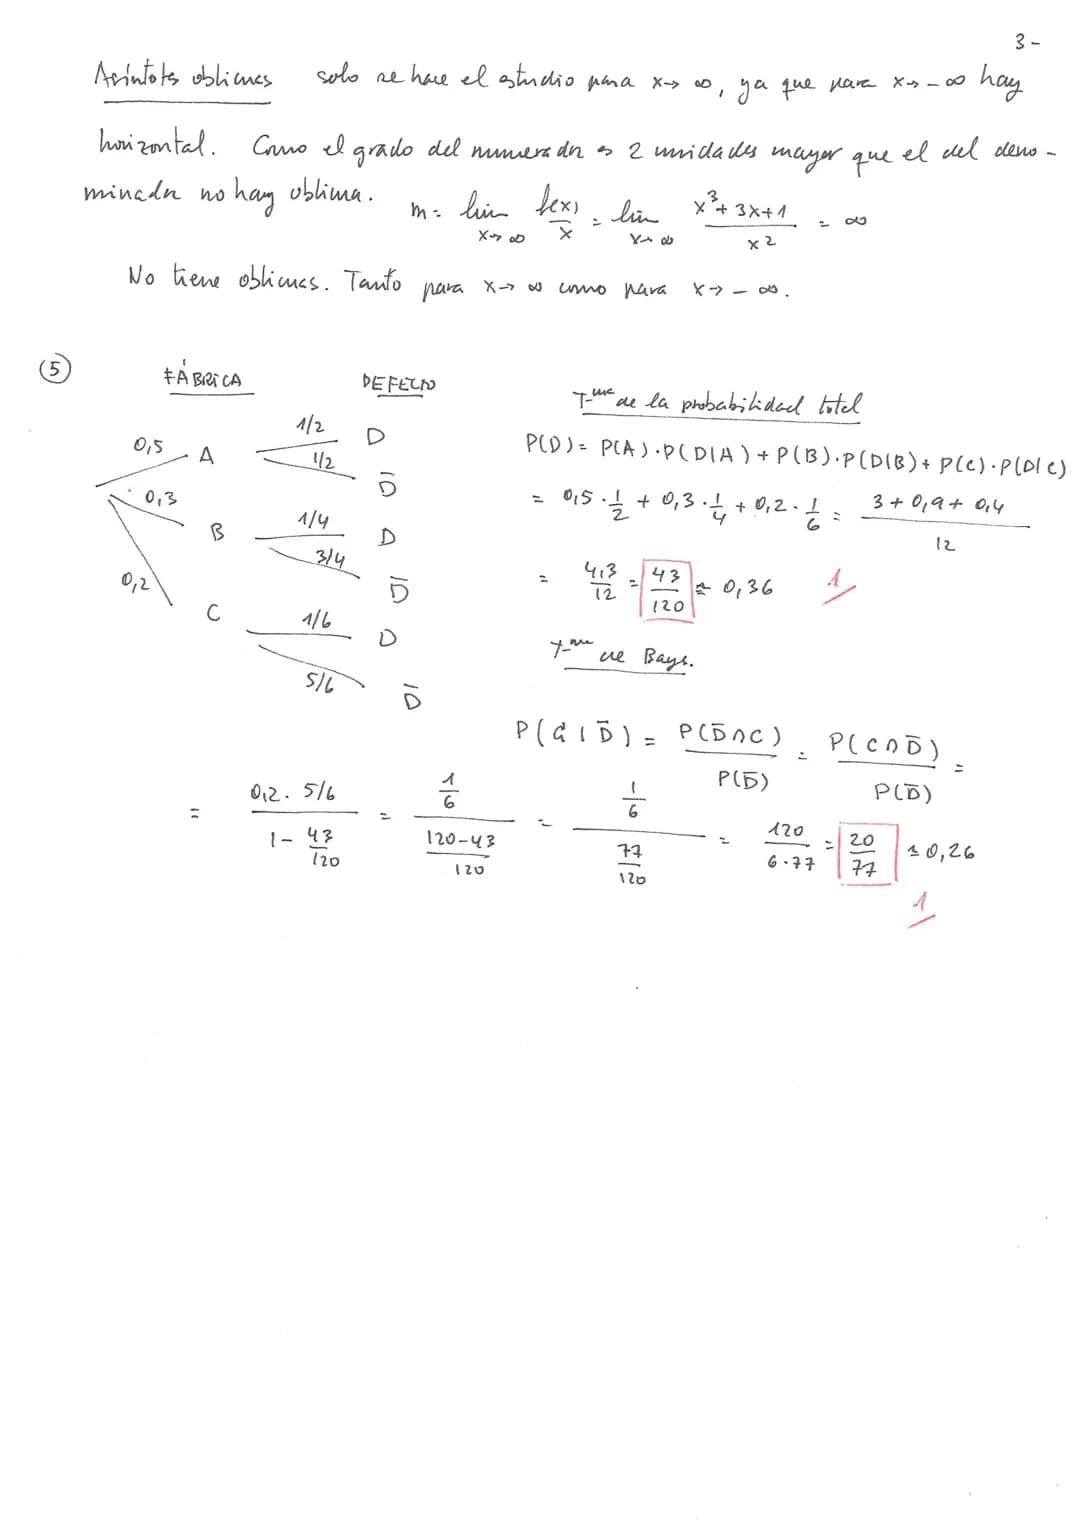 3-
Asíntotas oblicuas solo se hace el estudio para x→ ∞, ya que para x→ -∞ hay
horizontal. Como el grado del numerador es 2 unidades mayor que el del deno-
minador no hay oblicua. m = lim x→∞ f(x)/x = lim x→∞ (x³+3x+1)/x² = ∞
No tiene oblicuas. Tanto para x→ ∞ como para x→ -∞.
⑤ FÁBRICA DEFECTO
0,5 A 1/2 D
1/2 D̅
0,3 B 1/4 D
3/4 D̅
0,2 C 1/6 D
5/6 D̅
T-ma de la probabilidad total
P(D) = P(A)·P(D|A) + P(B)·P(D|B) + P(C)·P(D|C)
= 0,5·1/2 + 0,3·1/4 + 0,2·1/6 = (3+0,9+0,4)/12
= 4,3/12 = 43/120 ≈ 0,36 1
T-ma de Bays.
P(C|D̅) = P(D̅∩C)/P(D̅) = P(C∩D̅)/P(D̅) =
= (0,2·5/6)/(1-43/120) = (1/6)/((120-43)/120) = (1/6)/(77/120) = 120/(6·77) = 20/77 ≈ 0,26
1